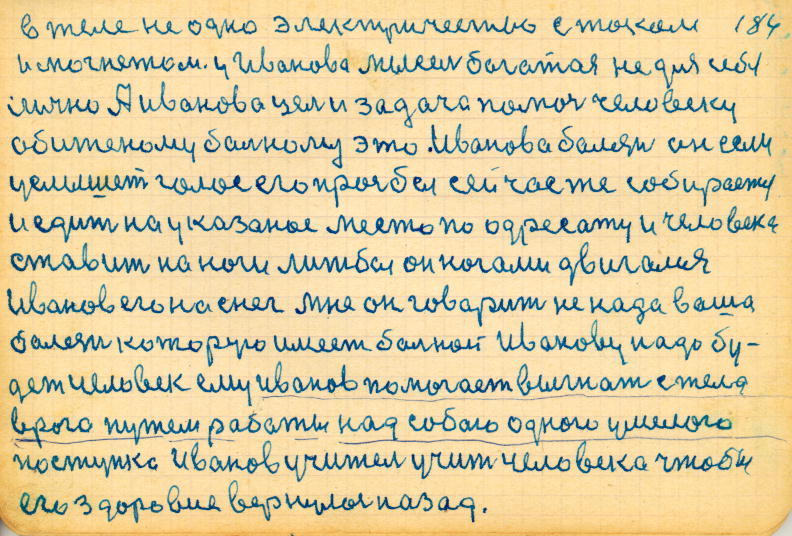 в теле не одно электричество с током 184.
и могнетом. у Иванова мысел богатая не для себя
лично А иванова цел и задача помоч человеку
обиженому балному это. Иванова болезн он если
услишет голос его прочбы сейчас же собирается
и едит на указаное место по одресату и человека
ставит на ноги литбы он ногами двигался
Иванов его на снег мне он говарит не нада ваша
балезн которую имеет балной Иванову надо бу-
дет человек ему иванов помогает выгнат с тела
врога путем рабаты над собаю одного умелого
поступка Иванов учител учит человека чтобы
его здоровие вернулос назад.